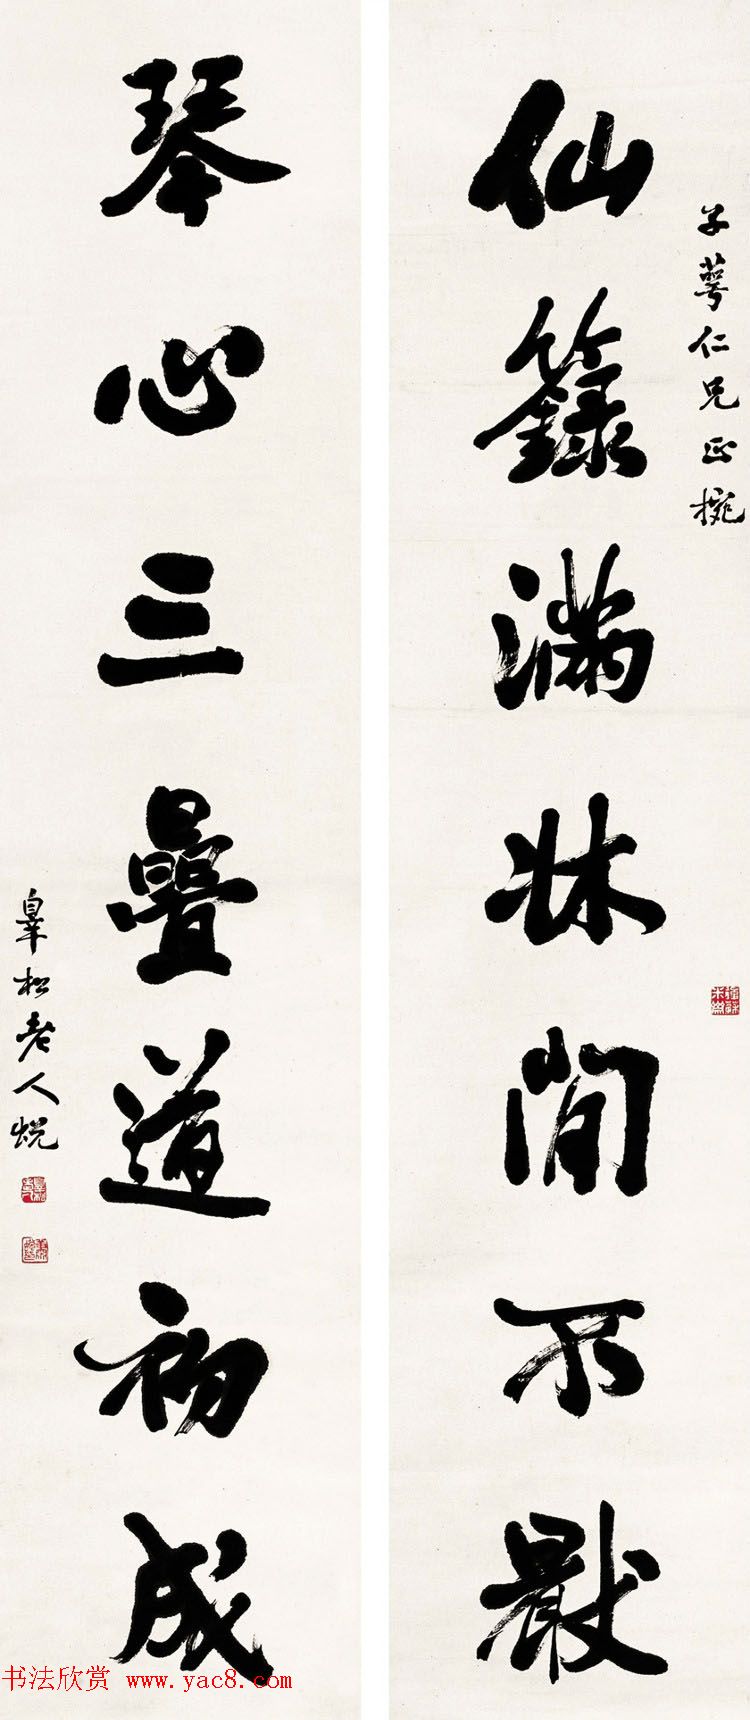 子萼仁兄正捥
仙籙滿牀間不厭
琴心三疊道初成
皋松老人蛻
书法欣赏 www.yac8.com